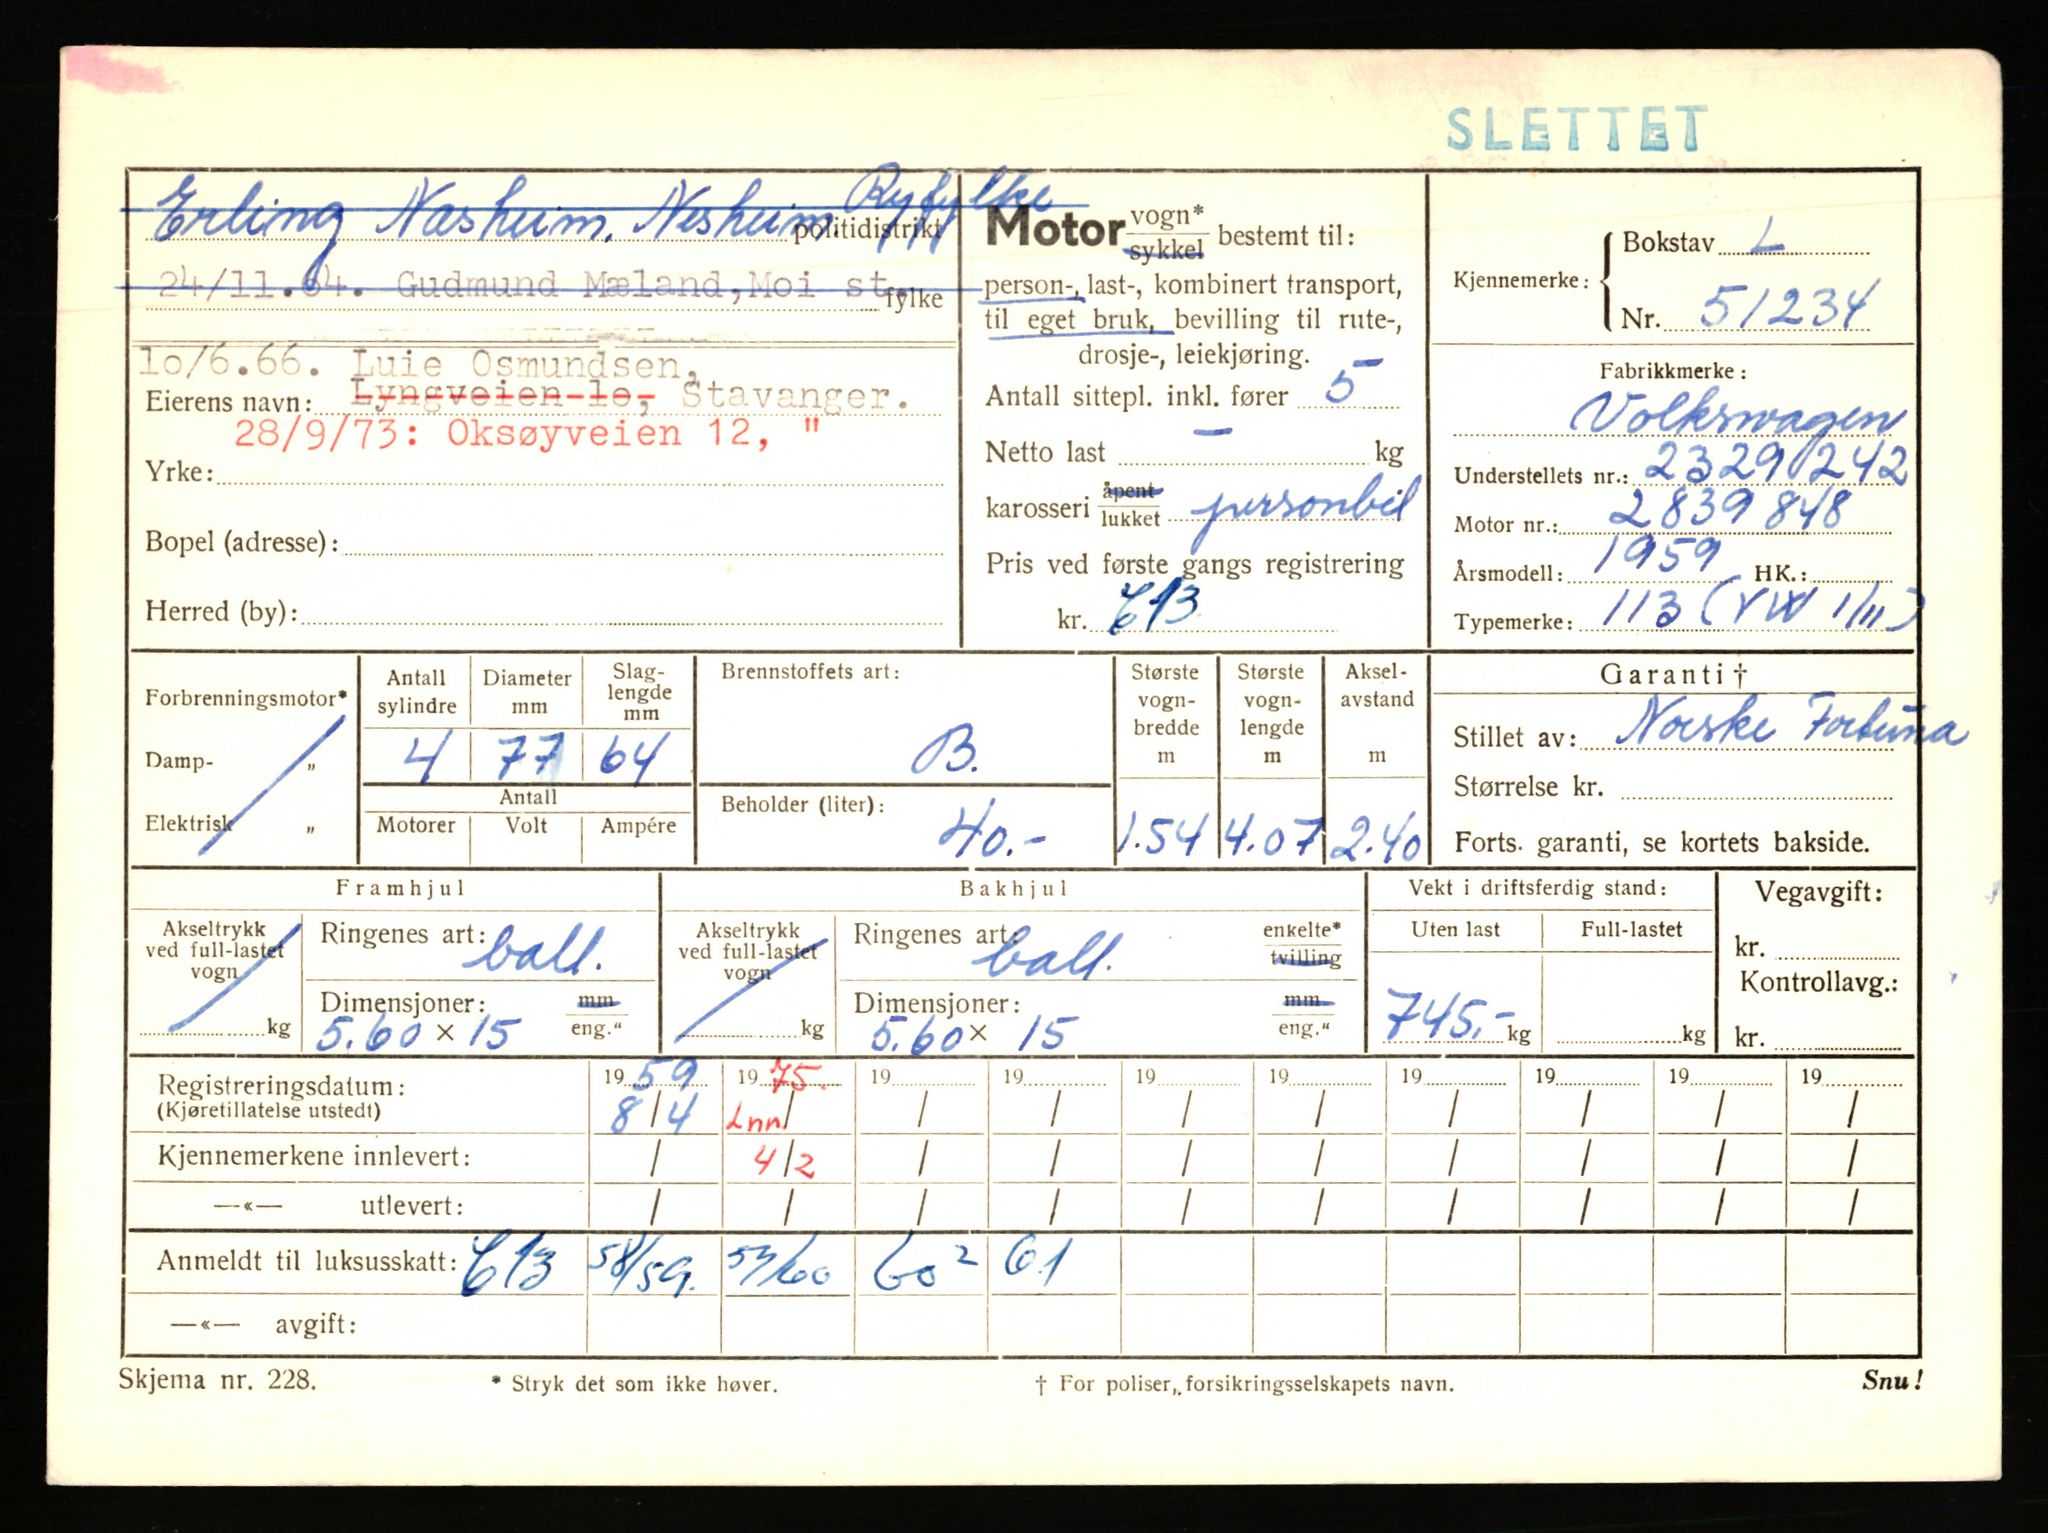 SLETTET
Erling Næsheim, Nesheim Ryfylke
politidistrikt
24/11.64. Gudmund Mæland, Moi st.
fylke
10/6.66. Luie Osmundsen,
Eierens navn: Lyngveien 10, Stavanger.
28/9/73: Oksøyveien 12, "
Yrke:
Bopel (adresse):
Herred (by):
Motor vogn* sykkel bestemt til:
person-, last-, kombinert transport,
til eget bruk, bevilling til rute-,
drosje-, leiekjøring.
Antall sittepl. inkl. fører 5
Netto last – kg
karosseri åpent lukket personbil
Pris ved første gangs registrering
kr. 613
Kjennemerke: Bokstav L
Nr. 51234
Fabrikkmerke:
Volkswagen
Understellets nr.: 2329242
Motor nr.: 2839848
Årsmodell: 1959 HK.:
Typemerke: 113 (VW 1/11)
Forbrenningsmotor*
Damp- "
Elektrisk "
Antall sylindre Diameter mm Slag-lengde mm
4 77 64
Antall
Motorer Volt Ampére
Brennstoffets art:
B.
Beholder (liter):
40.-
Største vogn-bredde m Største vogn-lengde m Aksel-avstand m
1.54 4.07 2.40
Garanti †
Stillet av: Norske Fortuna
Størrelse kr.
Forts. garanti, se kortets bakside.
Framhjul
Akseltrykk ved full-lastet vogn
kg
Ringenes art: ball.
Dimensjoner: mm
5.60 × 15 eng."
Bakhjul
Akseltrykk ved full-lastet vogn
kg
Ringenes art: ball. enkelte* tvilling
Dimensjoner: mm
5.60 × 15 eng."
Vekt i driftsferdig stand:
Uten last Full-lastet
745.- kg kg
Vegavgift:
kr.
Kontrollavg.:
kr.
Registreringsdatum: 19 59 19 75. 19 19 19 19 19 19 19 19
(Kjøretillatelse utstedt) 8/4 Inn/ / / / / / / / /
Kjennemerkene innlevert: / 4/2 / / / / / / / /
—«— utlevert: / / / / / / / / / /
Anmeldt til luksusskatt: 613 58/59. 59/60 60² 61
—«— avgift:
Skjema nr. 228. * Stryk det som ikke høver. † For poliser, forsikringsselskapets navn. Snu!